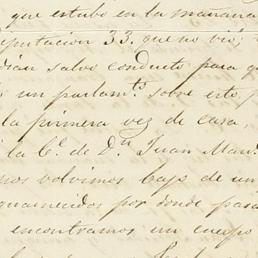 que estubo en la mañana
putacion 33. que no vió;
dian salvo conducto para q
un parlam.to sobre esto, p
la primera vez de casa,
la C.e de D.n Juan Man.
nos volvimos bajo de un
guarnecidos por donde pasa
encontramos un cuerpo